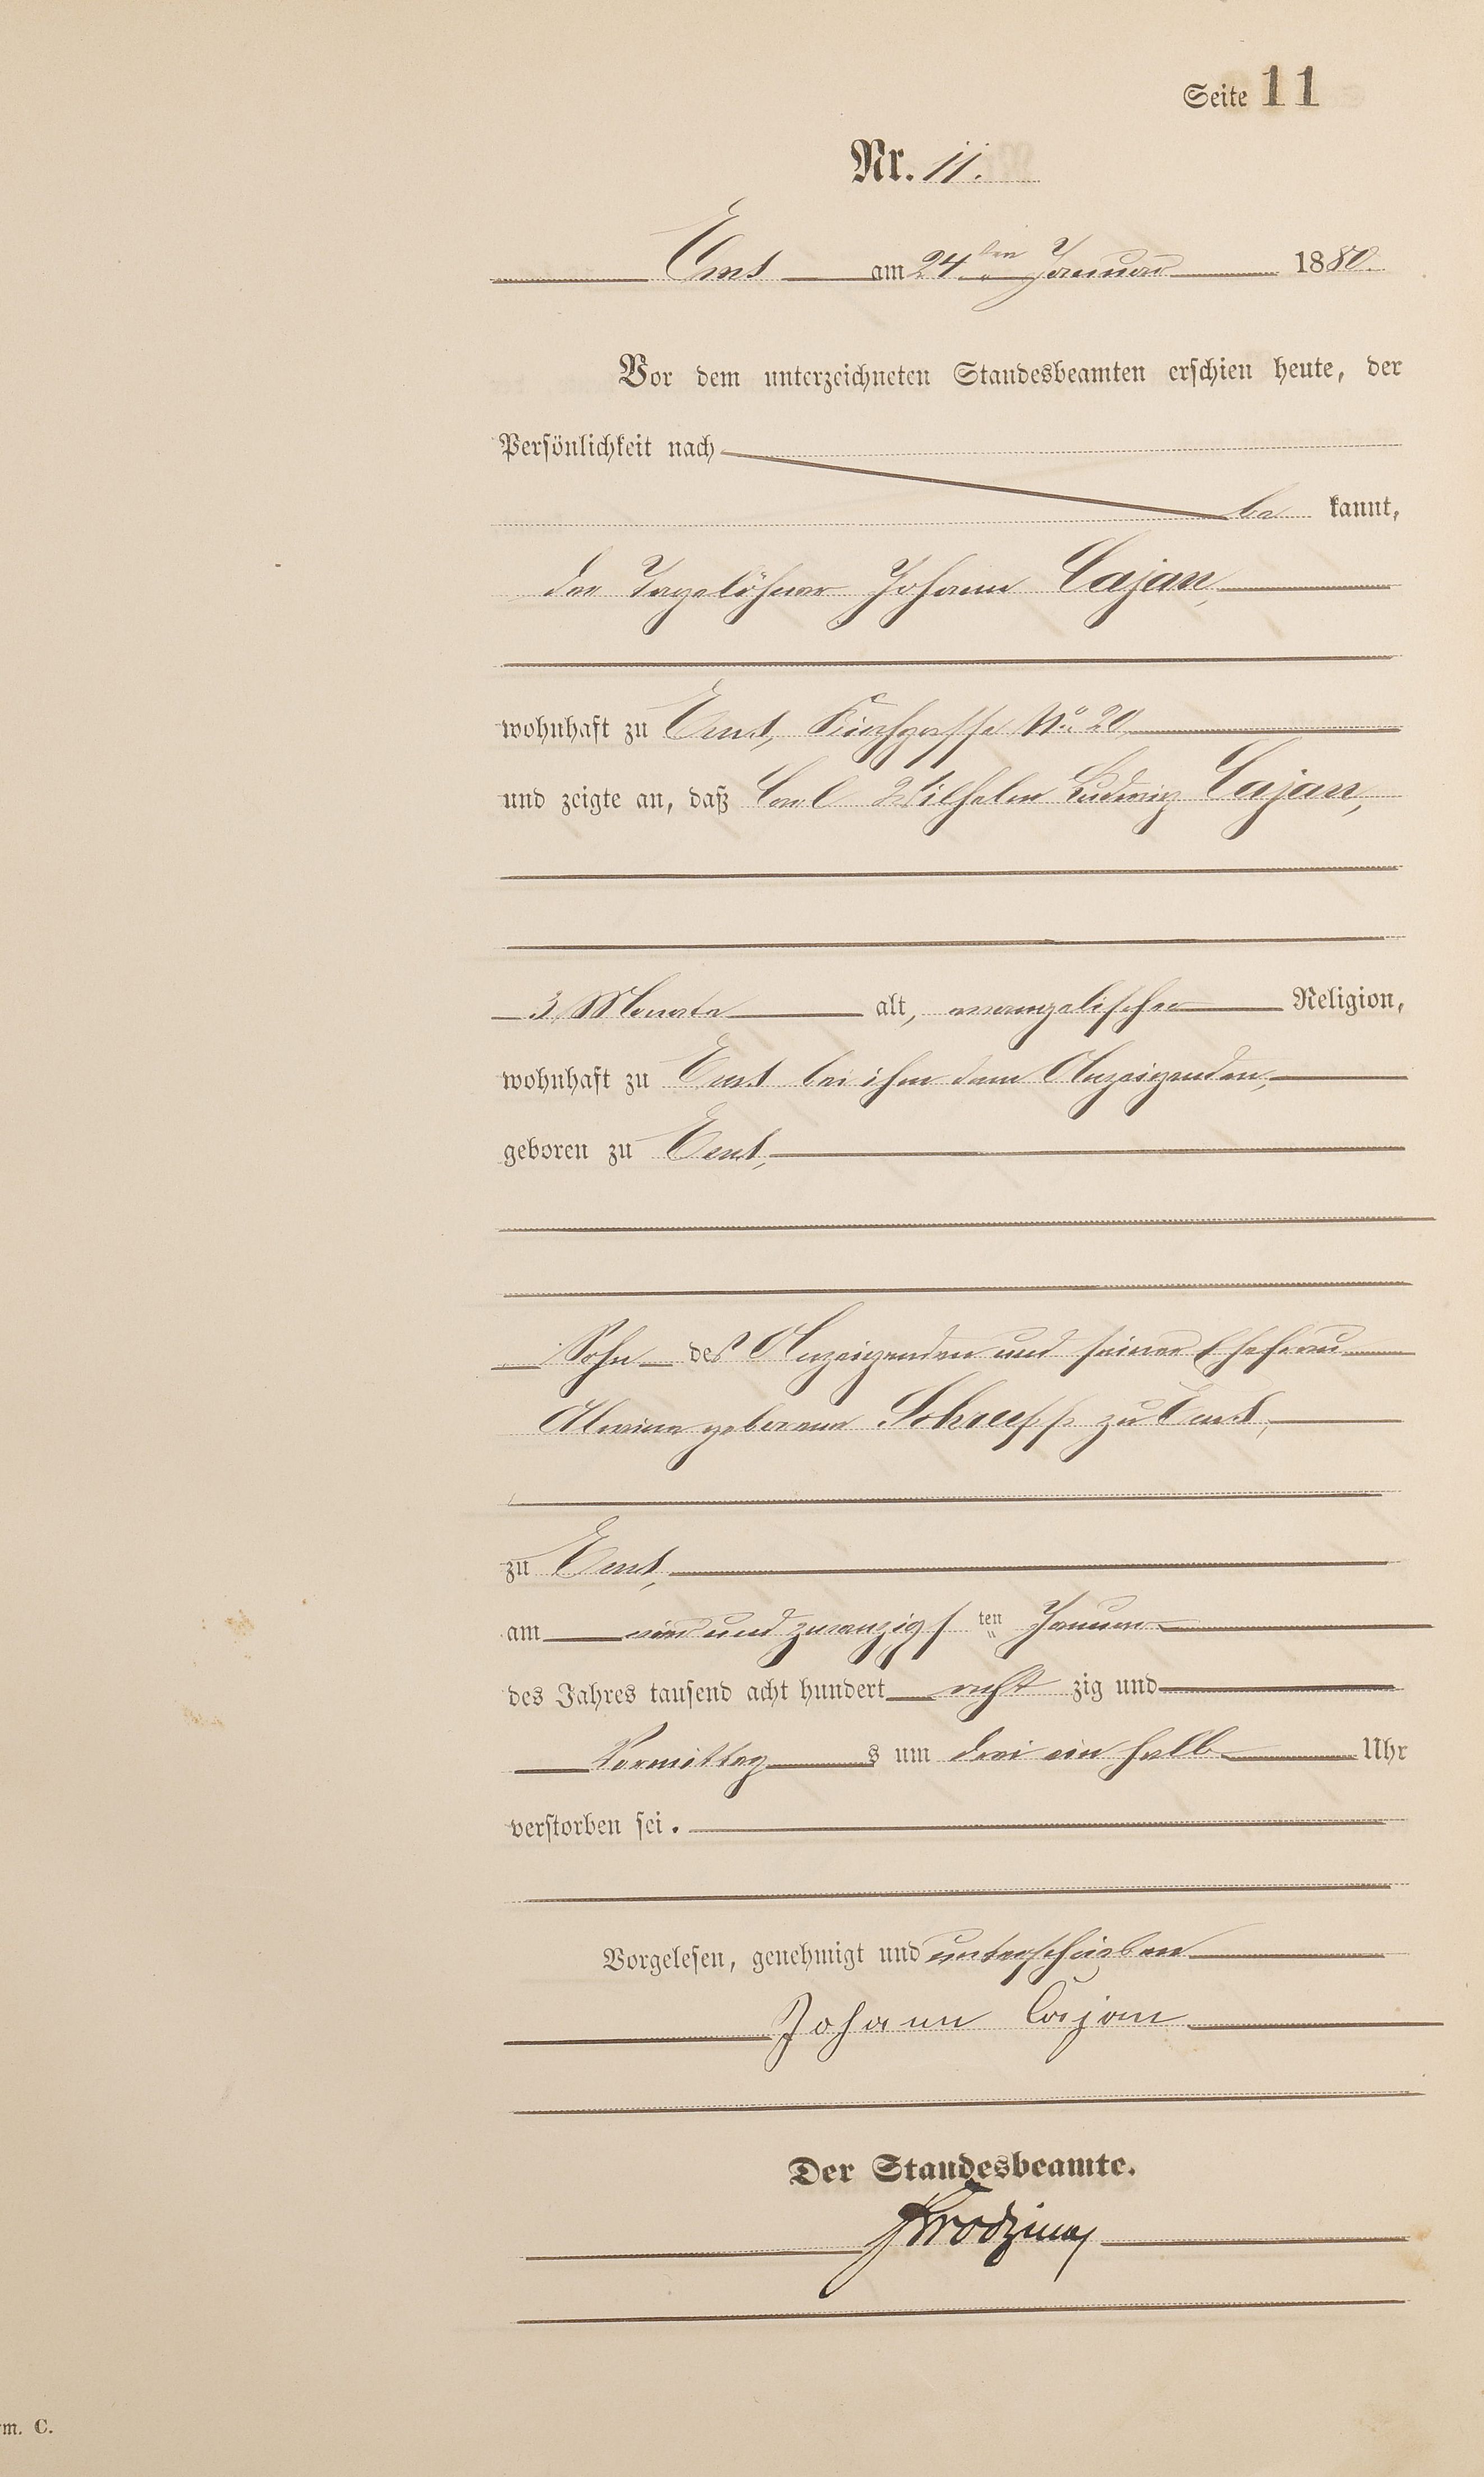 Seite 11
Nr. 11.
Ems am 24ten Januar 1880.
Vor dem unterzeichneten Standesbeamten erschien heute, der
Persönlichkeit nach
be kannt,
der Tagelöhner Johann Cajan,
wohnhaft zu Ems, Kirchgasse No. 20
und zeigte an, daß Carl Wilhelm Ludwig Cajan,
3 Monate alt, evangelischer Religion,
wohnhaft zu Ems bei ihm dem Anzeigenden,
geboren zu Ems,
Sohn des Anzeigenden und seiner Ehefrau
geborene Schrupp zu Ems,
zu Ems,
am vier und zwanzigsten Januar
des Jahres tausend acht hundert acht zig und
Vormittags um drei ein halb Uhr
verstorben sei.
Vorgelesen, genehmigt und unterschrieben
Johann Cajan
Der Standesbeamte.
m. C.